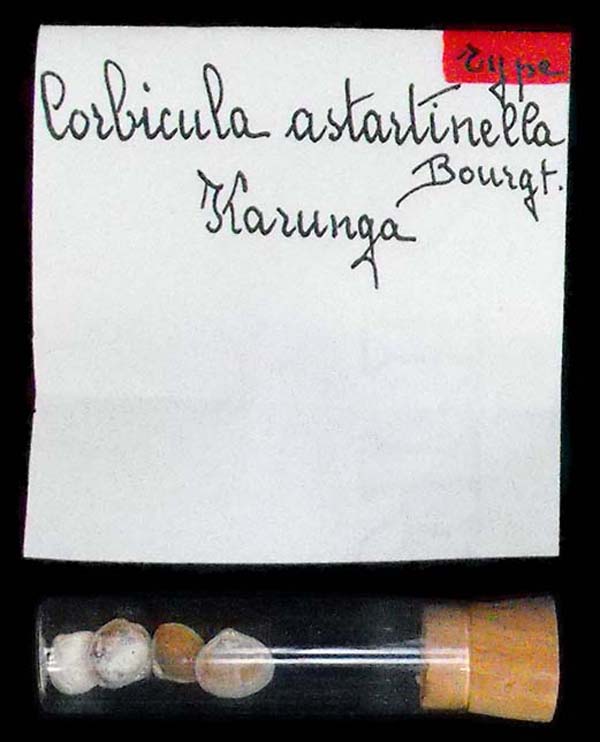 Type
Corbicula astartinella
Bourgt.
Karunga